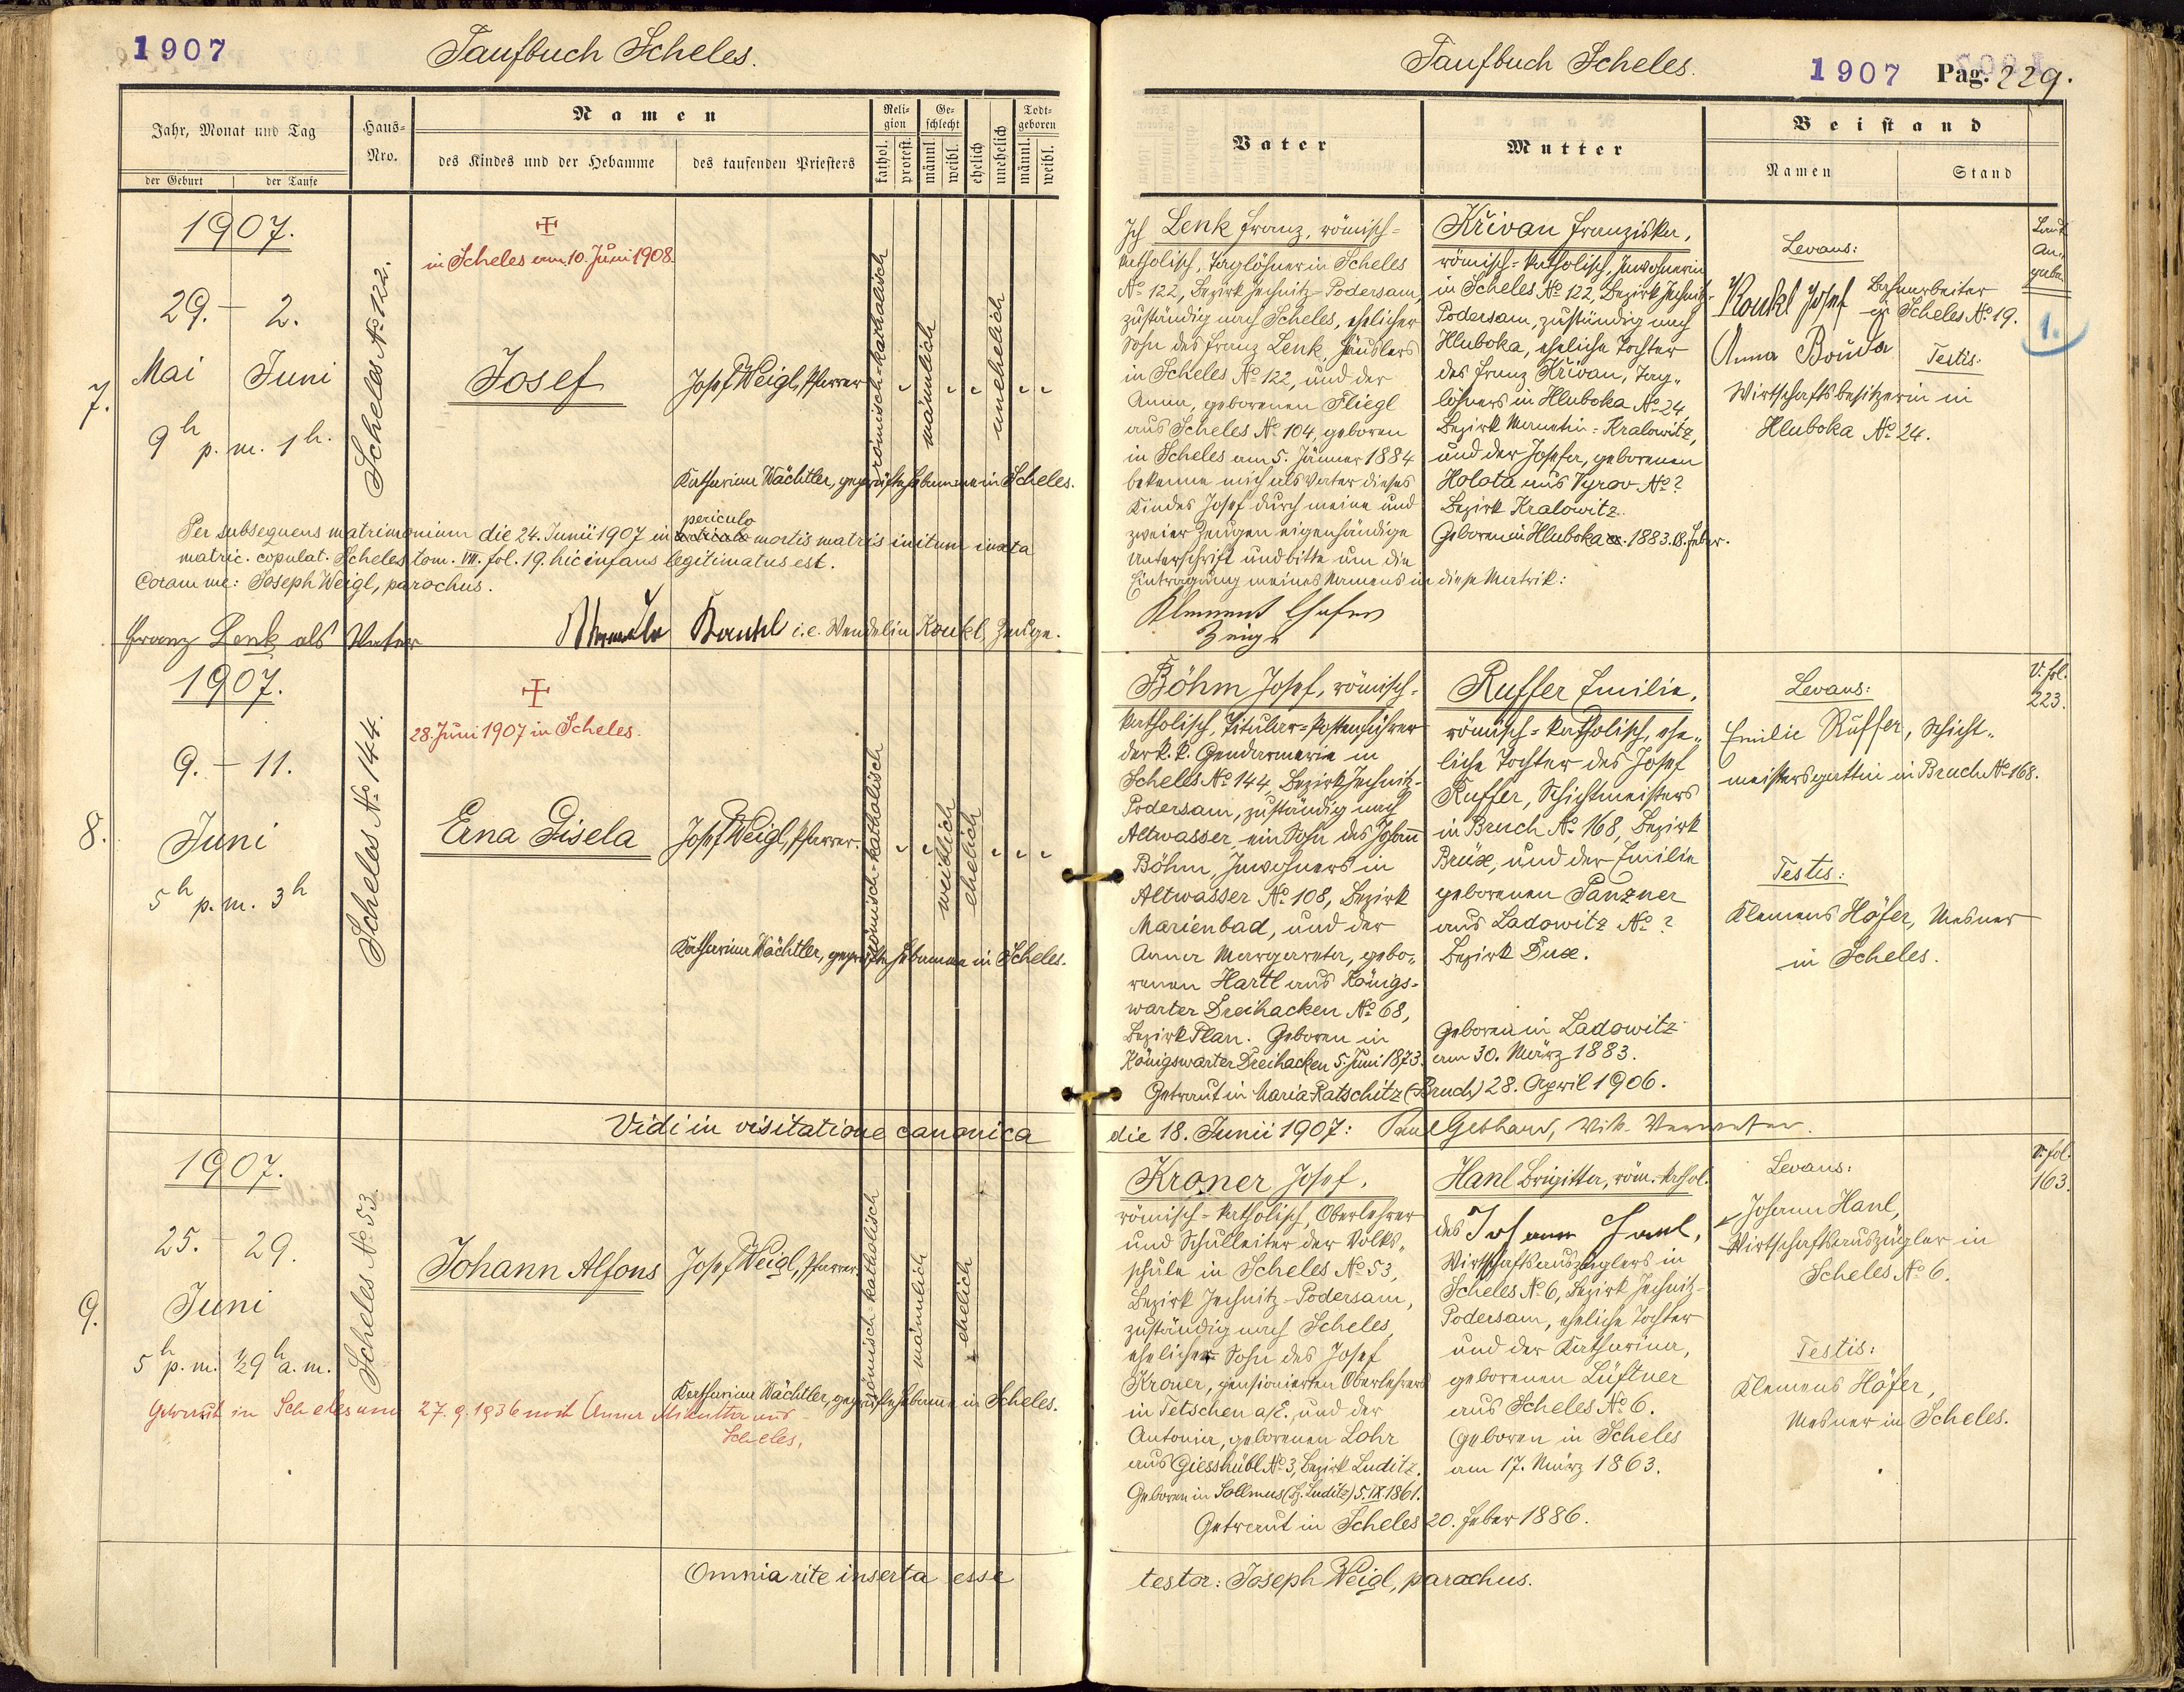 1907
Taufbuch Scheles.
Jahr, Monat und Tag
der Geburt
der Taufe
Haus-
Nro.
Namen
des Kindes und der Hebamme
des taufenden Priesters
Reli-
gion
kathol.
protest.
Ge-
schlecht
männl.
weibl.
ehelich
unehelich
Todt-
geboren
männl.
weibl.
7.
1907.
29. – 2.
Mai Juni
9h p. m. 1h.
Scheles No 122.
in Scheles am 10. Juni 1908.
Josef
Josef Weigl, Pfarrer
römisch-katholisch
männlich
unehelich
Katharina Wächtler, geprüfte Hebamme in Scheles.
Per subsequens matrimonium die 24. Junii 1907 in periculo mortis matris initum iuxta
matric. copulat. Scheles tom. VII. fol. 19. hic infans legitimatus est.
Coram me: Joseph Weigl, parochus.
Franz Lenk als Vater
Koukl i. e. Wendelin Koukl, Zeuge.
8.
1907.
9. – 11.
Juni
5h p. m. 3h
Scheles No 144.
28. Juni 1907 in Scheles.
Erna Gisela
Josef Weigl, Pfarrer.
römisch-katholisch
weiblich
ehelich
Katharina Wächtler, geprüfte Hebamme in Scheles.
Vidi in visitatione canonica
9.
1907.
25. – 29.
Juni
5h p. m. ½9h a. m.
Scheles No 53.
Johann Alfons
Josef Weigl, Pfarrer.
römisch-katholisch
männlich
ehelich
Katharina Wächtler, geprüfte Hebamme in Scheles.
Getraut in Scheles am 27. 9. 1936 mit Anna
Scheles.
Omnia rite inserta esse
Taufbuch Scheles.
1907 Pag. 229.
Vater
Mutter
Beistand
Namen
Stand
Ich Lenk Franz, römisch-
katholisch, Taglöhner in Scheles
No 122, Bezirk Jechnitz-Podersam,
zuständig nach Scheles, ehelicher
Sohn des Franz Lenk, Häuslers
in Scheles No 122, und der
Anna, geborenen Fliegl
aus Scheles No 104, geboren
in Scheles am 5. Jänner 1884
bekenne mich als Vater dieses
Kindes Josef durch meine und
zweier Zeugen eigenhändige
Unterschrift und bitte um die
Eintragung meines Namens in diese Matrik:
Klement Hafer
Zeuge
Křivan Franziska,
römisch-katholisch, Inwohnerin
in Scheles No 122, Bezirk Jechnitz-
Podersam, zuständig nach
Hluboka, eheliche Tochter
des Franz Křivan, Tag-
löhners in Hluboka No 24,
Bezirk Manetin-Kralowitz,
und der Josefa, geborenen
Holota aus Vyrov No ?
Bezirk Kralowitz.
Geboren in Hluboka 1883. 18. Feber.
Levans:
Koukl Josef Bahnarbeiter
in Scheles No 19.
Anna Bouda Testis:
Wirtschaftsbesitzerin in
Hluboka No 24.
Laut
An-
gabe
1.
Böhm Josef, römisch-
katholisch, Titular-Postenführer
der k. k. Gendarmerie in
Scheles No 144, Bezirk Jechnitz-
Podersam, zuständig nach
Altwasser, ein Sohn des Johann
Böhm, Inwohners in
Altwasser No 108, Bezirk
Marienbad, und der
Anna Margareta, gebo-
renen Hartl aus Königs-
warter Dreihacken No 68,
Bezirk Plan. Geboren in
Königswarter Dreihacken 5. Juni 1873.
Ruffer Emilie,
römisch-katholisch, ehe-
liche Tochter des Josef
Ruffer, Schichtmeisters
in Bruch No 168, Bezirk
Brüx, und der Emilie
geborenen Panzner
aus Ladowitz No ?
Bezirk Dux.
Geboren in Ladowitz
am 30. März 1883.
Getraut in Maria-Ratschitz (Bruch) 28. April 1906.
Levans:
Emilie Ruffer, Schicht-
meistersgattin in Bruch No 168.
Testis:
Klemens Höfer, Mesner
in Scheles.
V. fol.
223.
die 18. Junii 1907: Paul Gebhard, Vik. Verweser.
Kroner Josef,
römisch-katholisch, Oberlehrer
und Schulleiter der Volks-
schule in Scheles No 53,
Bezirk Jechnitz-Podersam,
zuständig nach Scheles,
ehelicher Sohn des Josef
Kroner, pensionierten Oberlehrers
in Tetschen a/E. und der
Antonia, geborenen Lohr
aus Giesshübl No 3, Bezirk Luditz.
Geboren in Sollmus (Bz. Luditz) 5. IX. 1861.
Hanl Brigitta, röm. kathol.
des Johann Hanl,
Wirtschaftsauszüglers in
Scheles No 6, Bezirk Jechnitz-
Podersam, eheliche Tochter
und der Katharina,
geborenen Lüftner
aus Scheles No 6.
Geboren in Scheles
am 17. März 1863.
Getraut in Scheles 20. Feber 1886.
Levans:
Johann Hanl,
Wirtschaftsauszügler in
Scheles No 6.
Testis:
Klemens Höfer,
Mesner in Scheles.
V. fol.
163.
testor: Joseph Weigl, parochus.